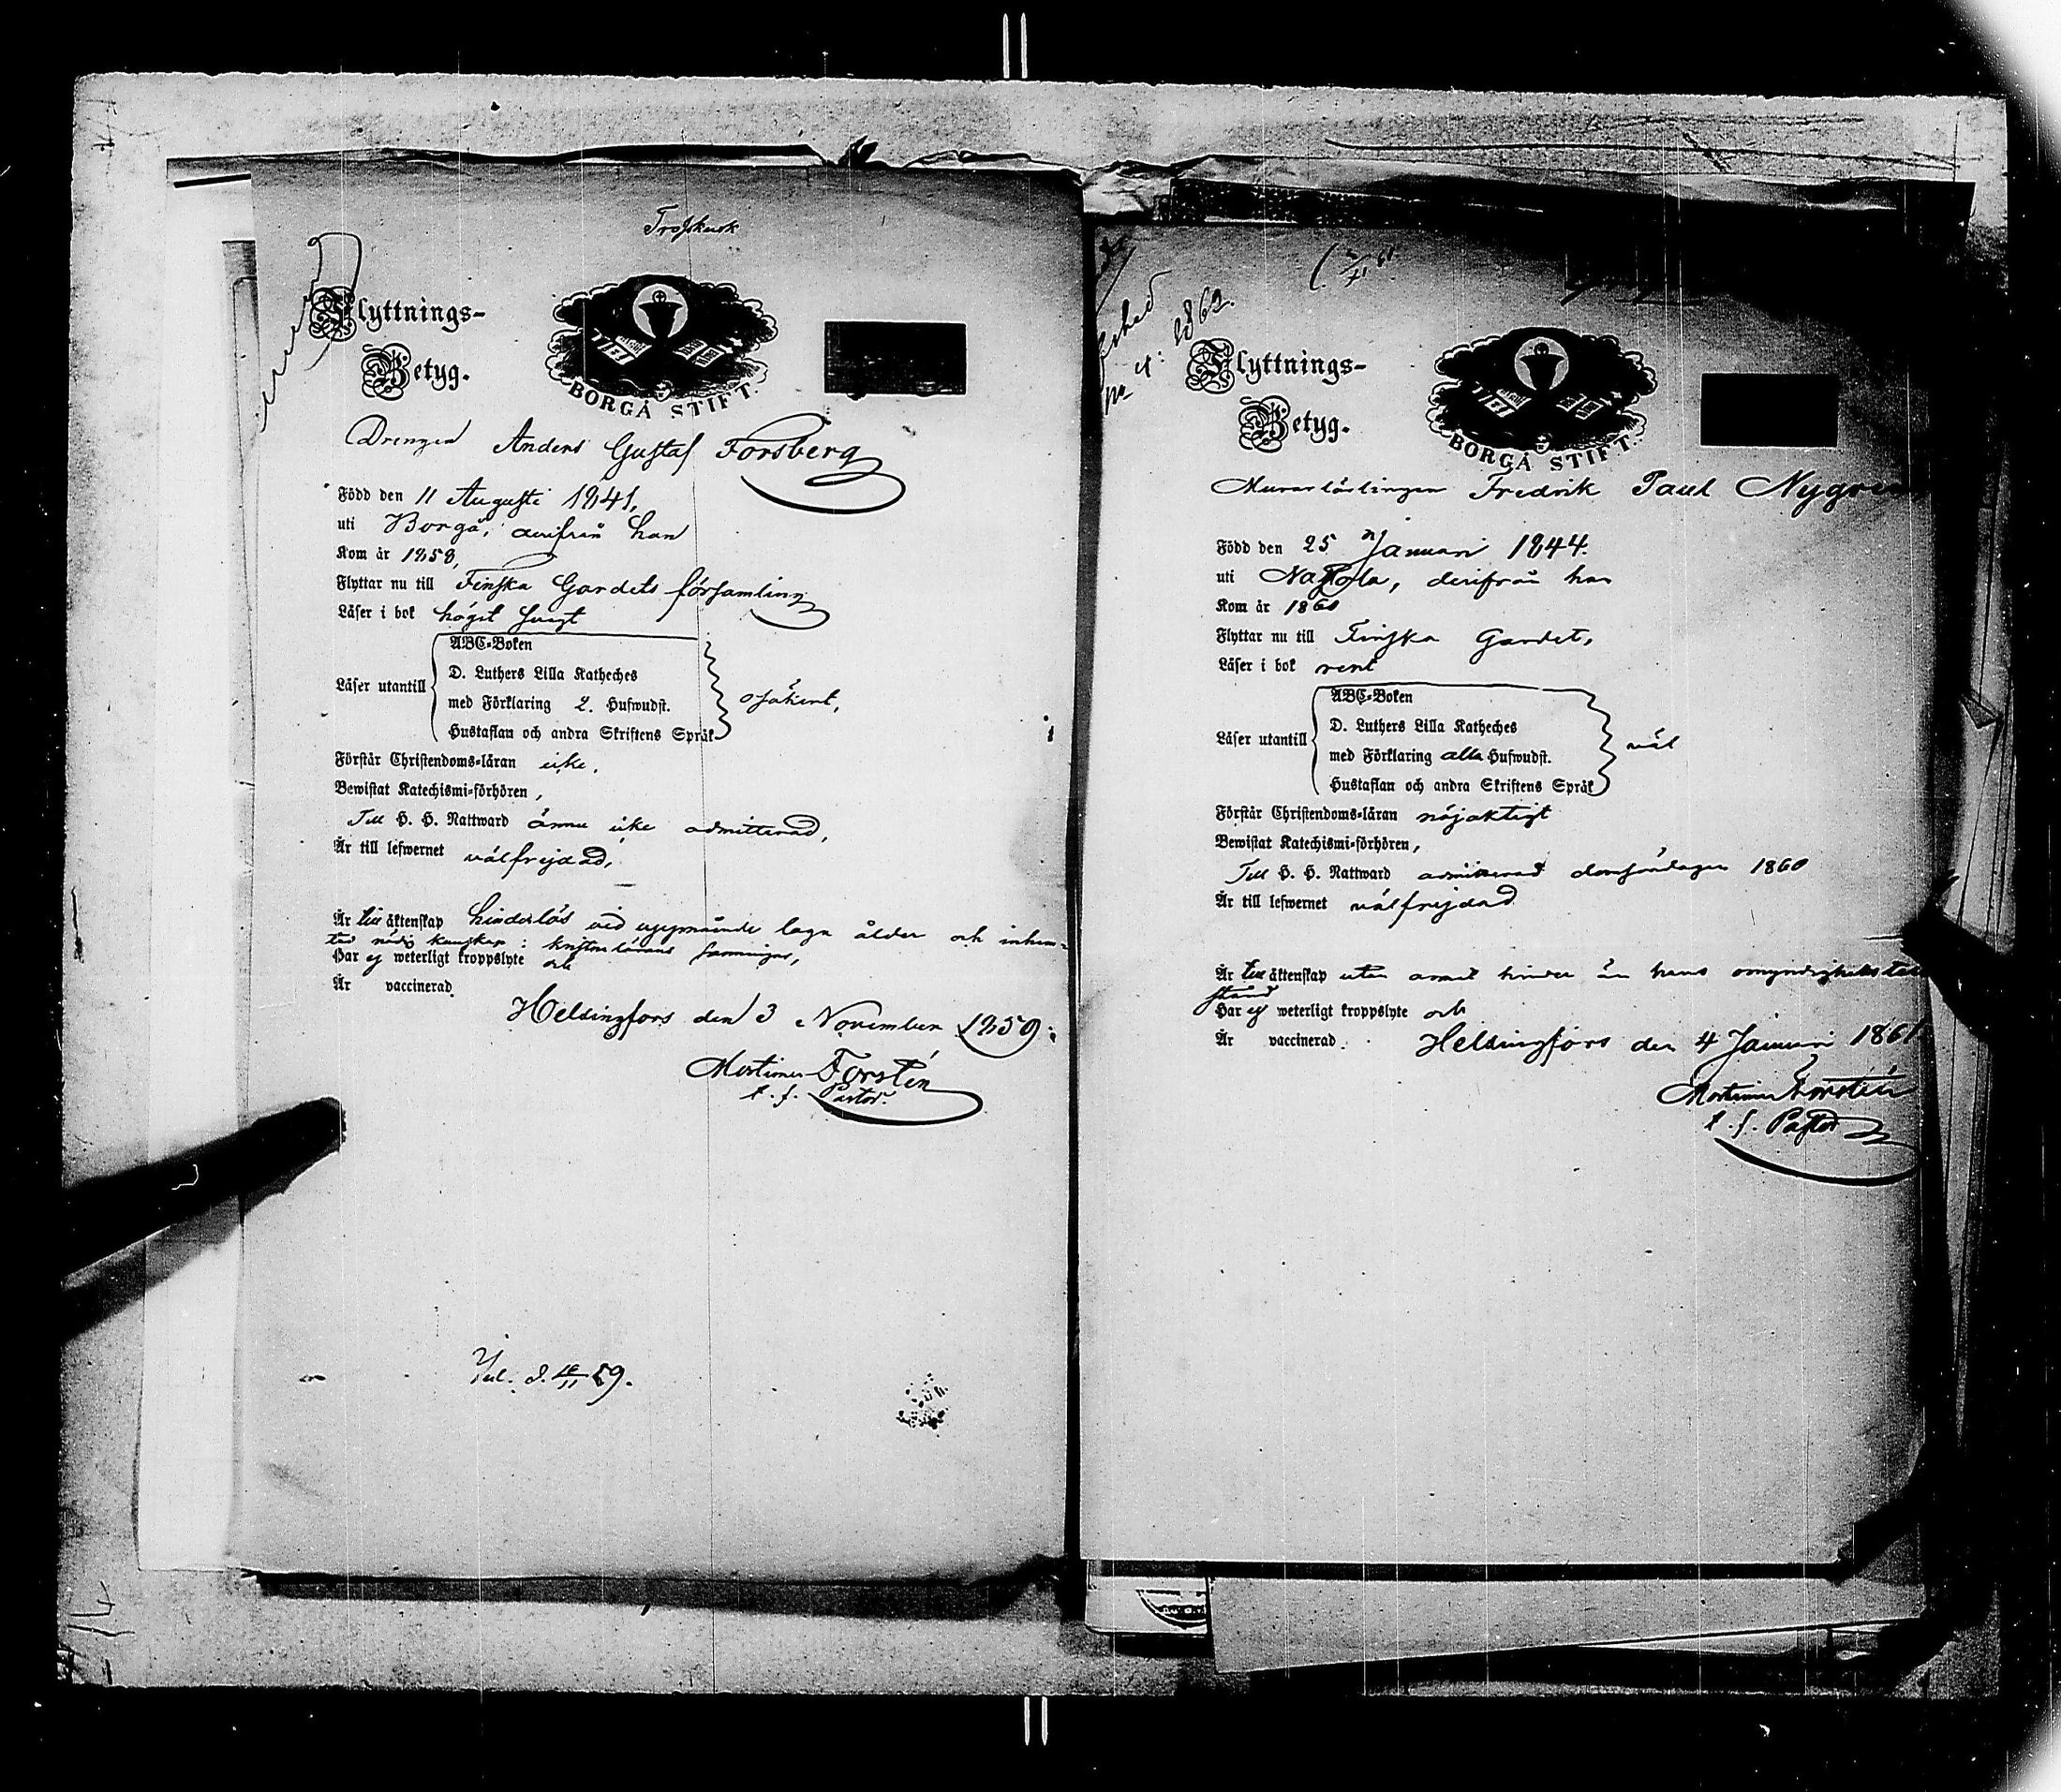 Flyttnings-
Betyg.
BORGÅ STIFT.
Drengen Anders Gustaf Forsberg
Född den 11 Augusti 1841,
uti Borgå, derifrån han
Kom år 1858,
Flyttar nu till Finska Gardets församling
Läser i bok högst svagt
ABC-Boken
D. Luthers Lilla Katheches
Läser utantill
med Förklaring 2. Hufwudst.
osäkert,
Hustaflan och andra Skriftens Språk
Förstår Christendoms-läran icke,
Bewistat Katechismi-förhören,
Till H. H. Nattward ännu icke admitterad,
Är till lefwernet välfrejdad,
Är till äktenskap hinderlös vid uppnående laga ålder och inhem-
tad nödig kunskap i kristna lärans sanningar,
Har ej weterligt kroppslyte och
Är vaccinerad
Helsingfors den 3 November 1859.
Mortimer Forstén
t. f. Pastor.
59.
1862.
Flyttnings-
Betyg.
BORGÅ STIFT.
Murarlärlingen Fredrik Paul Nygren
Född den 25 Januari 1844.
uti derifrån han
Kom år 1860
Flyttar nu till Finska Gardet,
Läser i bok rent
ABC-Boken
D. Luthers Lilla Katheches
Läser utantill
med Förklaring alla Hufwudst.
väl
Hustaflan och andra Skriftens Språk
Förstår Christendoms-läran nöjaktigt
Bewistat Katechismi-förhören,
Till H. H. Nattward admitterad domsöndagen 1860
Är till lefwernet välfrejdad
Är till äktenskap utan annat hinder än hans omyndighetstill
stånd
Har ej weterligt kroppslyte och
Är vaccinerad.
Helsingfors den 4 Januari 1861
Mortimer Forstén
t. f. Pastor